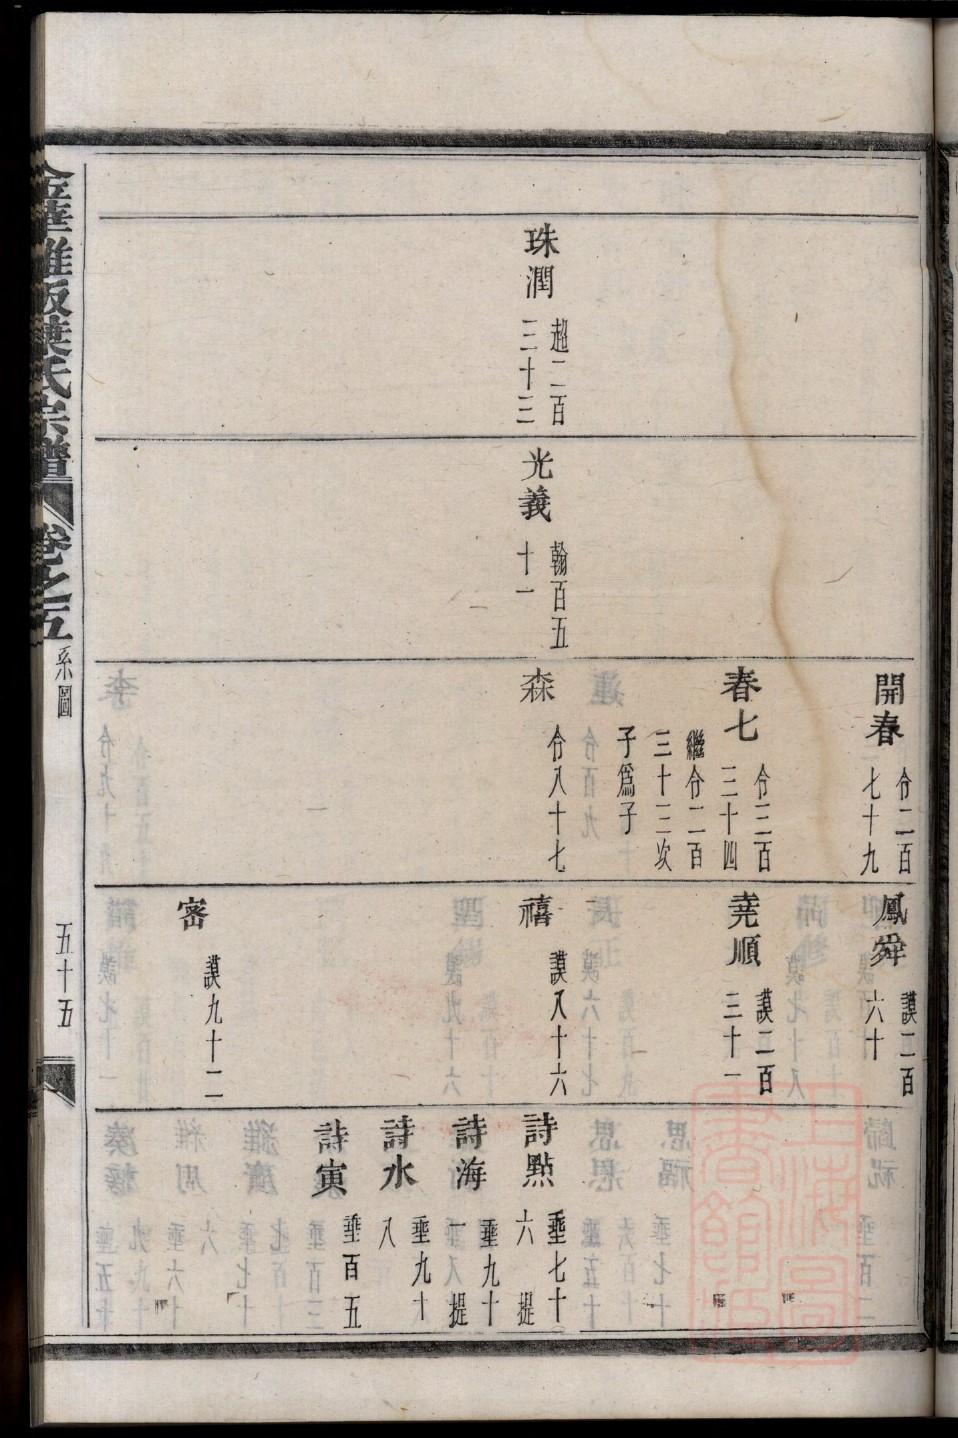 珠潤
超二百
三十三
光義
翰百五
十一
開春
㑹二百
七十九
春七
㑹三百
三十四
繼㑹二百
三十三次
子爲子
森
㑹八十七
鳳舜
謨二百
六十
堯順
謨二百
三十一
禧
謨八十六
密
謨九十二
詩點
垂七十
六 提
詩海
垂九十
一 提
詩水
垂九十
八
詩寅
垂百五
金華雅畈葉氏宗譜
卷之五
系圖
五十五